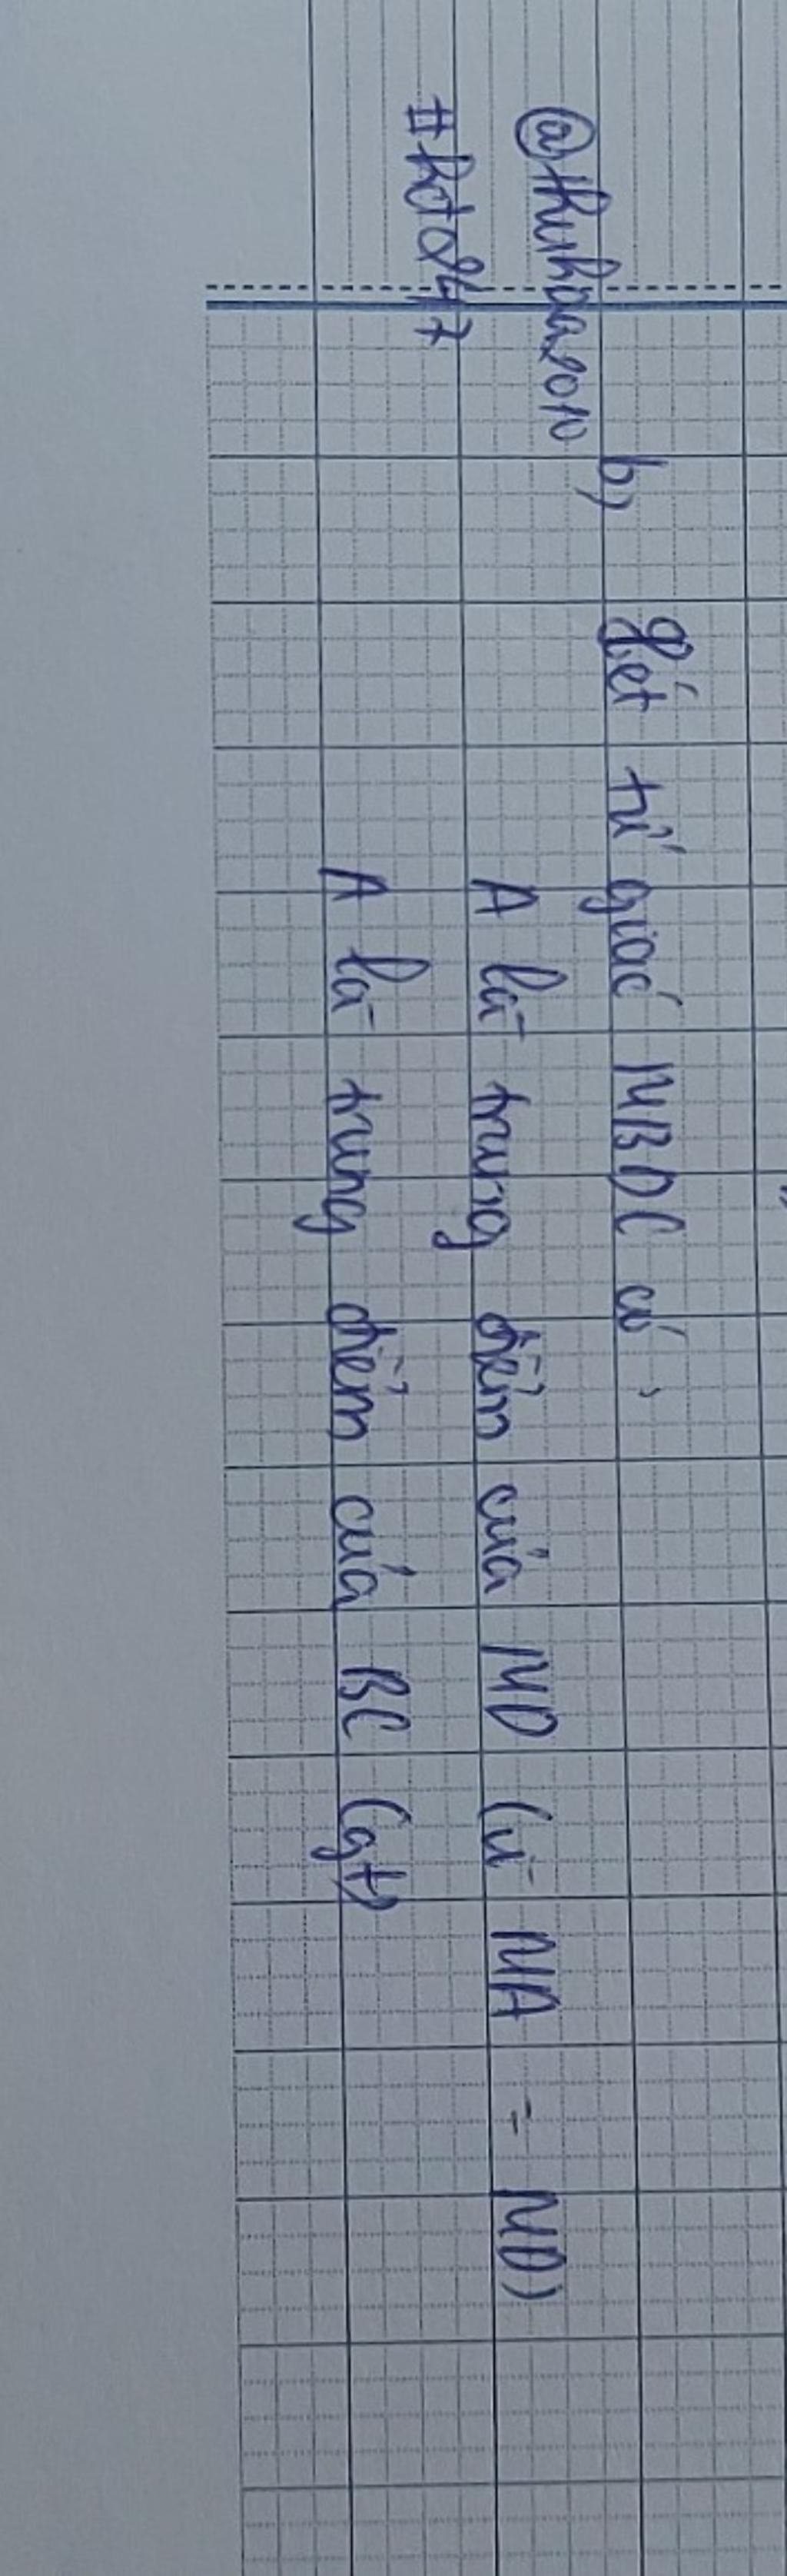 b) Xét tứ giác MBDC có :
@thuhoa2010
A là trung điểm của MD (vì MA = MD)
#hdt247
A là trung điểm của BC (gt)